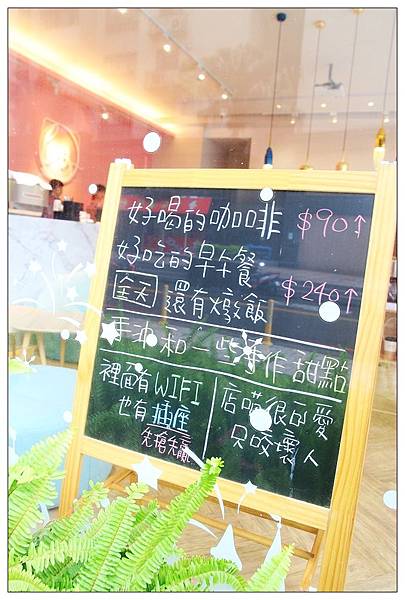 好喝的咖啡 $90↑
好吃的早午餐
全天 還有燉飯 $240↑
手沖和一些手作甜點
裡面有WIFI
也有插座
先搶先贏
店喵很可愛
只咬壞人